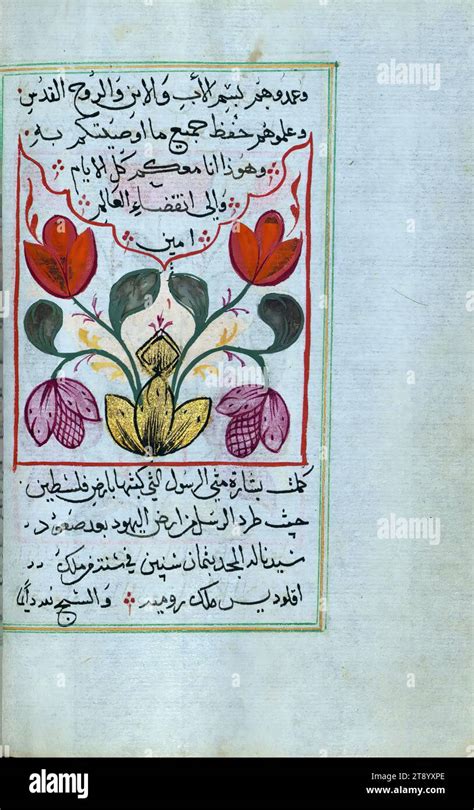 وعمدوهم بسم الاب والابن والروح القدس
وعلموهم حفظ جميع ما اوصيتكم به
وهوذا انا معكم كل الايام
والى انقضاء العالم
امين
كملت بشارة متى الرسول التي كتبها بارض فلسطين
حيث طرد الرسل من ارض اليهود بعد صعود
سيدنا له المجد بثمان سنين في
اقلوديس ملك رومية والسبح لله دايما
alamy
Image ID: 2T8YXPE
www.alamy.com